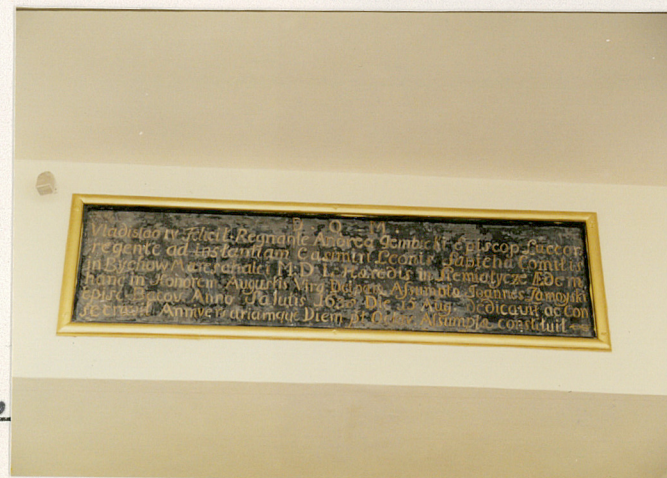 D O M
Vladislao IV Felicit Regnante Andrea Gembicki Episcop Luceor
regente ad Instantiam Casimiri Leonis Sapieha Comitis
in Bychow M D L Haredis in Siemiatycze ÆDem
hanc in Honorem Augustis Virg Deipar Assumpta Joannes Zamoyski
Episc Anno Salutis Die 15 Aug Dedicavit ac Con
Anniversariamque Diem Assumpta constituit